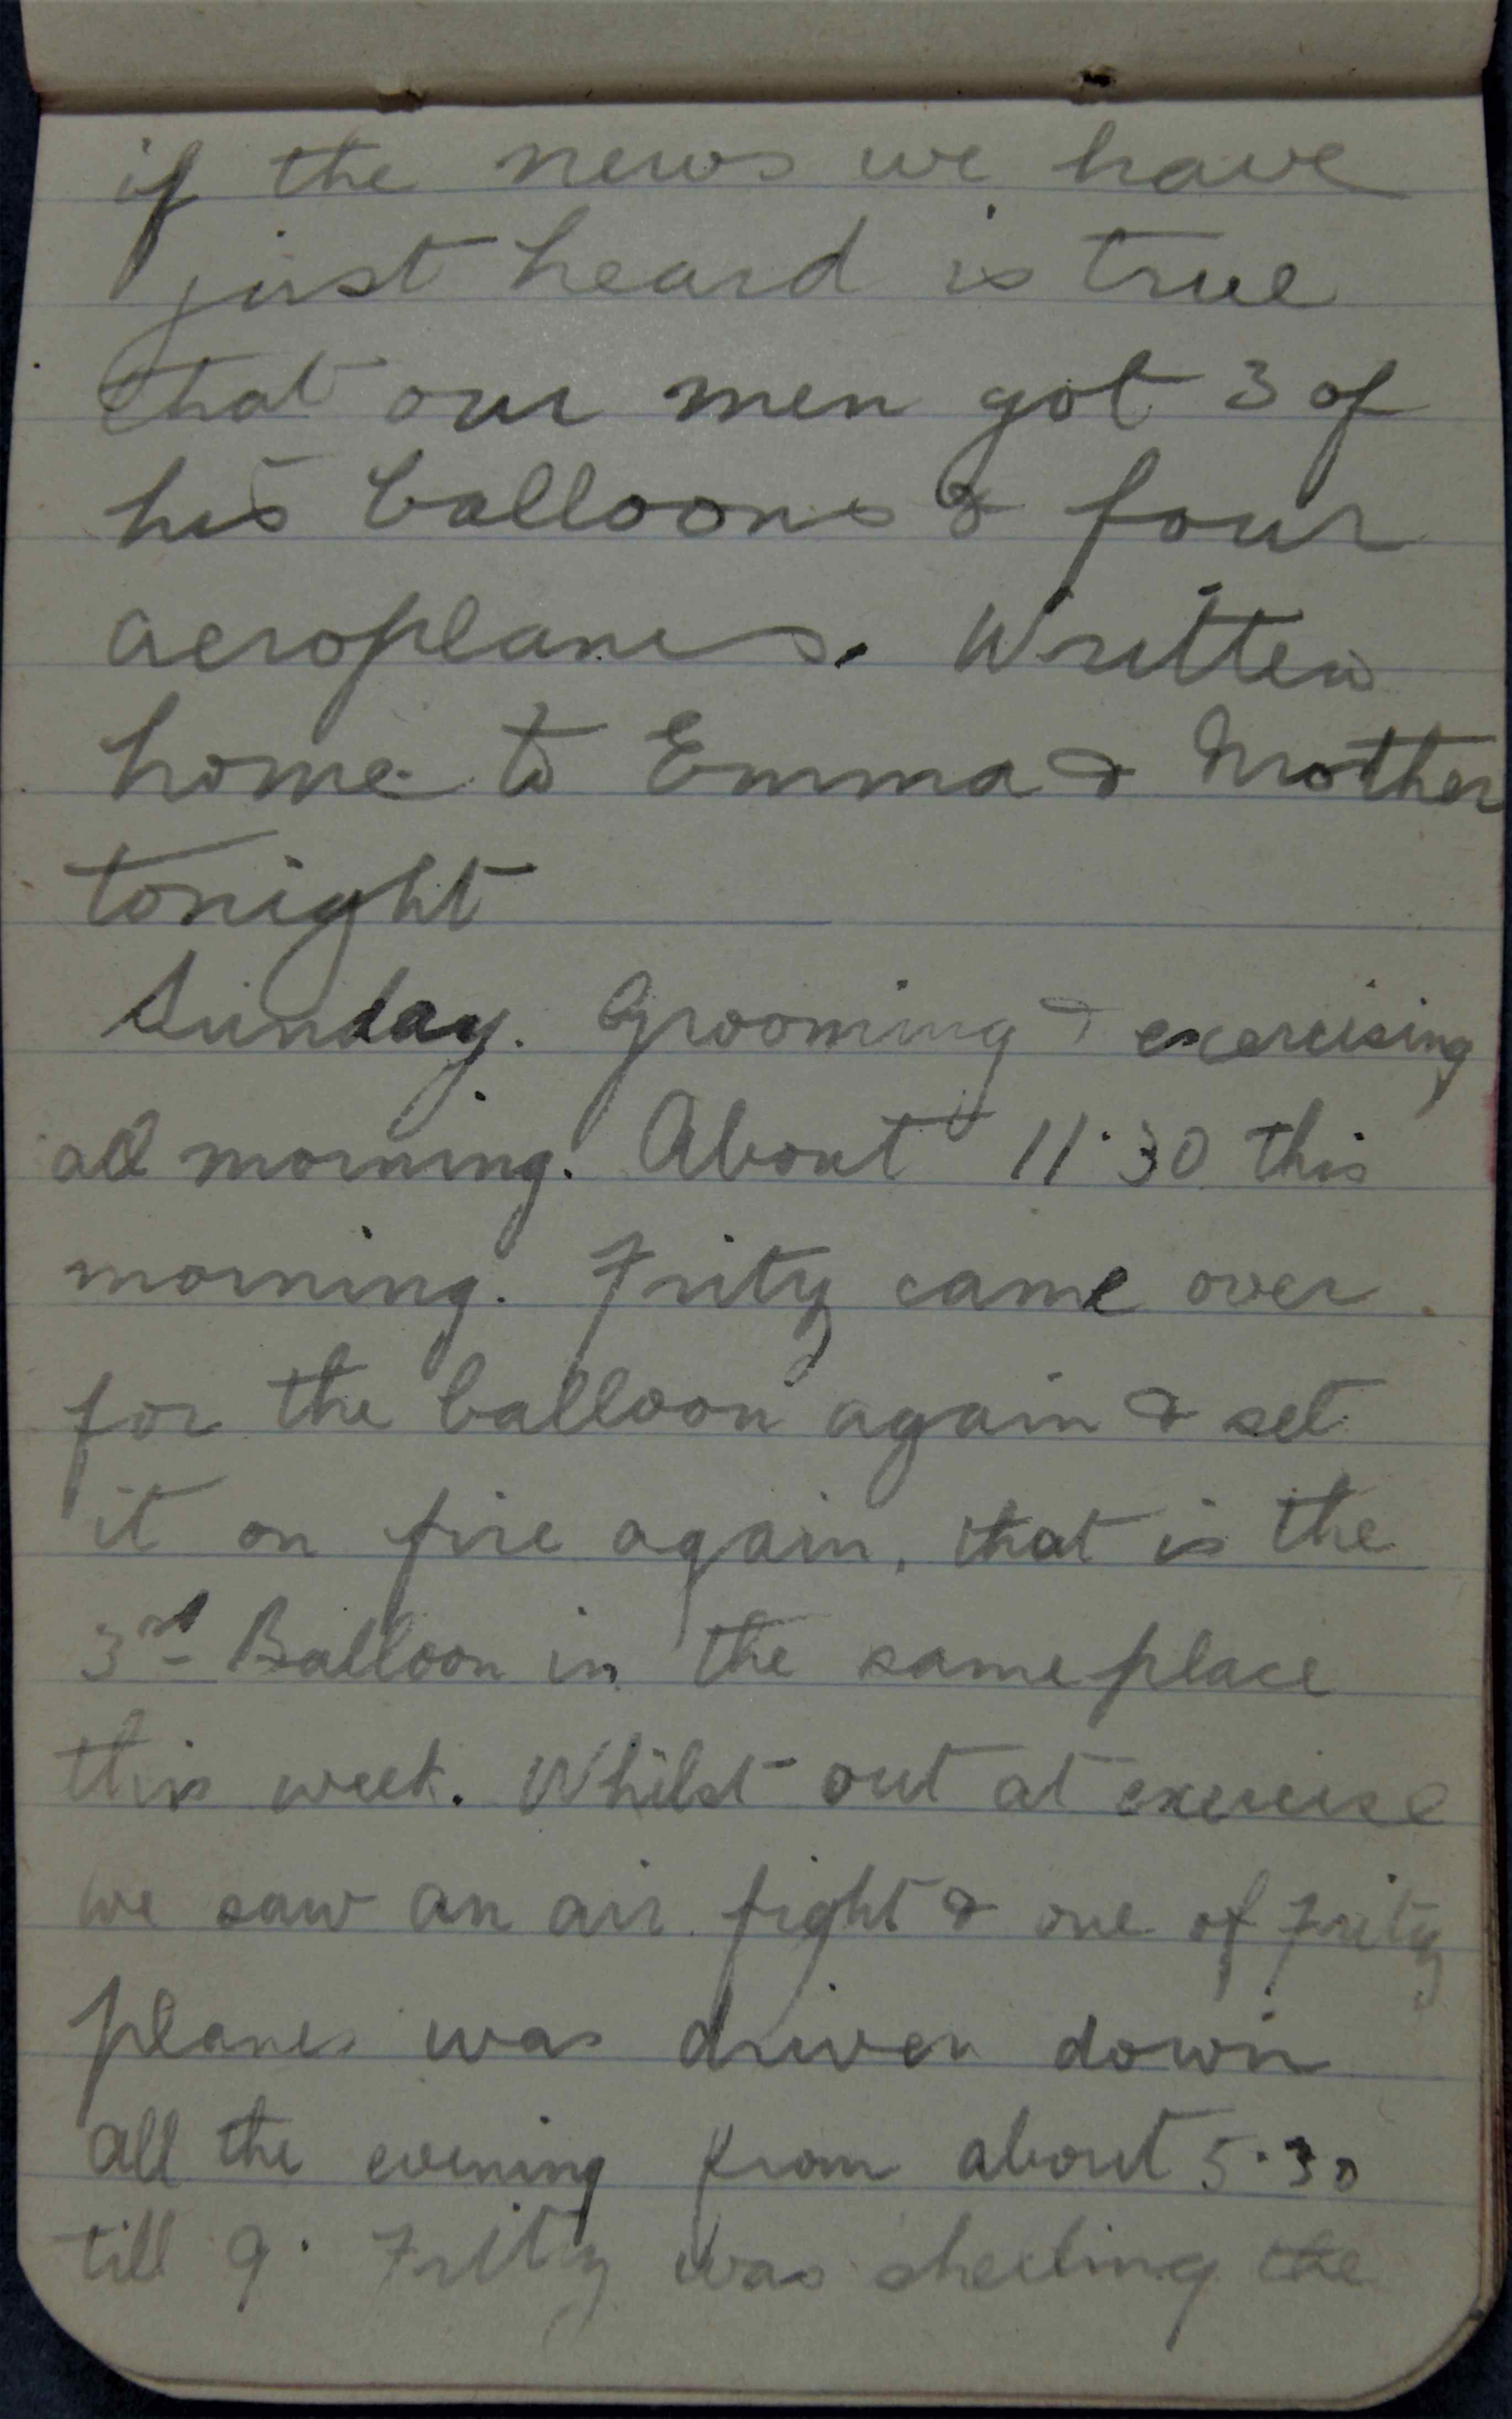 if the news we have
just heard is true
that our men got 3 of
his balloons & four
aeroplanes. Written
home to Emma & Mother
tonight
Sunday. Grooming & exercising
all morning. About 11.30 this
morning. Fritz came over
for the balloon again & set
it on fire again, that is the
3rd Balloon in the same place
this week. Whilst out at exercise
we saw an air fight & one of Fritz
planes was driven down
all the evening from about 5.30
till 9. Fritz was shelling the